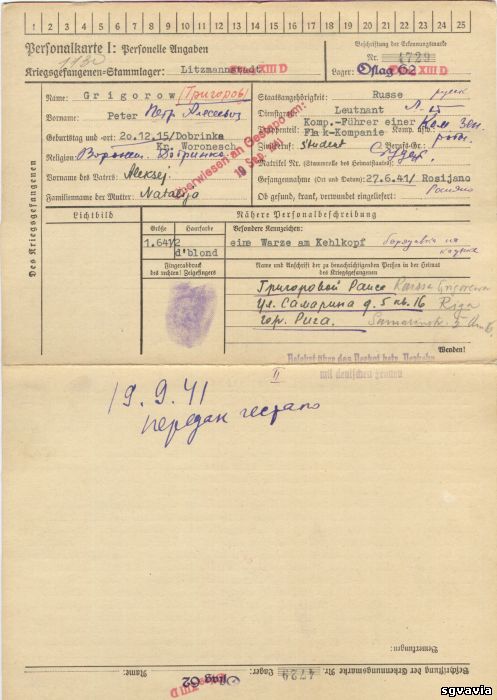 1 2 3 4 5 6 7 8 9 10 11 12 13 14 15 16 17 18 19 20 21 22 23 24 25
Personalkarte I: Personelle Angaben
Beschriftung der Erkennungsmarke
Nr. 4729
Kriegsgefangenen-Stammlager: Litzmannstadt XIII D
Lager: Oflag 62 XIII D
Des Kriegsgefangenen
Name: Grigorow (Григоров)
Vorname: Peter Петр Алексеевич
Geburtstag und -ort: 20.12.15/Dobrinka
Kr. Woronesch
Religion: Воронеж. Добринка
Vorname des Vaters: Aleksej
Familienname der Mutter: Natalija
Überwiesen an Gestapo am:
19. Sep. 1941
Staatsangehörigkeit: Russe русск
Dienstgrad: Leutnant
Komp.-Führer einer Ком зен.
Truppenteil: Flak-Kompanie Komp. usw.: роты
Zivilberuf: Student Berufs-Gr.:
Студ.
Matrikel Nr. (Stammrolle des Heimatstaates):
Gefangennahme (Ort und Datum): 27.6.41/ Rosijano
Ob gesund, krank, verwundet eingeliefert:
Lichtbild
Nähere Personalbeschreibung
Größe
Haarfarbe
Besondere Kennzeichen:
1.64 1/2
d'blond
eine Warze am Kehlkopf бородавка на
Fingerabdruck
des rechten! Zeigefingers
Name und Anschrift der zu benachrichtigenden Person in der Heimat
des Kriegsgefangenen
Григоровой Раисе Raissa Grigorewa
ул. Самарина д. 5 кв. 16 Riga
гор. Рига.
Wenden!
Befehl über das Verbot betr. Verkehr
mit deutschen Frauen
II
19.9.41
передан гестапо
Bemerkungen:
Name:
Beschriftung der Erkennungsmarke Nr. 4729 Lager: Oflag 62 XIII D
sgvavia